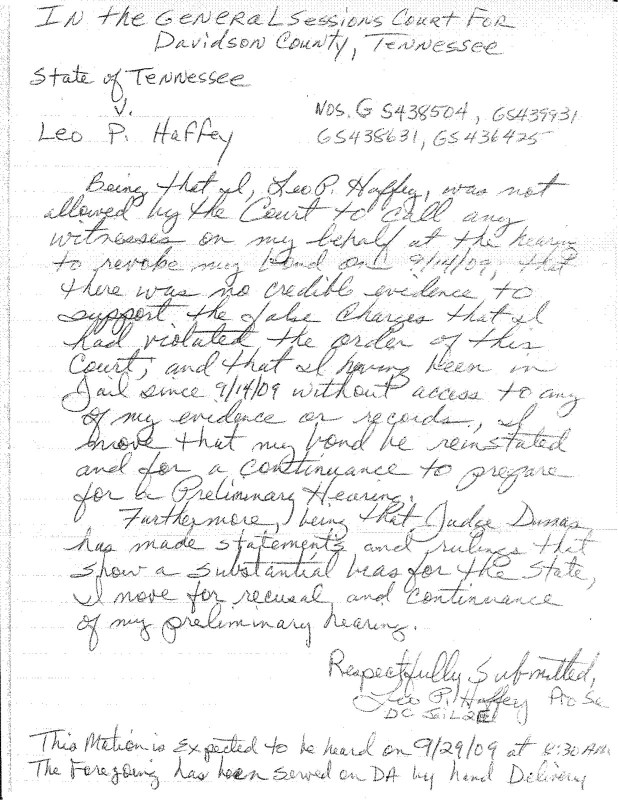 In the General Sessions Court For
Davidson County, Tennessee
State of Tennessee
v.
Leo P. Haffey
Nos. GS438504, GS439931
GS438631, GS436425
Being that I, Leo P. Haffey, was not
allowed by the Court to call any
witnesses on my behalf at the hearing
to revoke my bond on 9/14/09, that
there was no credible evidence to
support the false charges that I
had violated the order of this
Court, and that I having been in
Jail since 9/14/09 without access to any
of my evidence or records, I
move that my bond be reinstated
and for a continuance to prepare
for a Preliminary Hearing.
Furthermore, being that Judge Dumas
has made statements and rulings that
show a substantial bias for the State,
I move for recusal and continuance
of my preliminary hearing.
Respectfully Submitted,
Leo P. Haffey Pro Se
DC Jail
This Motion is Expected to be heard on 9/29/09 at 8:30 AM
The Foregoing has been served on DA by hand Delivery